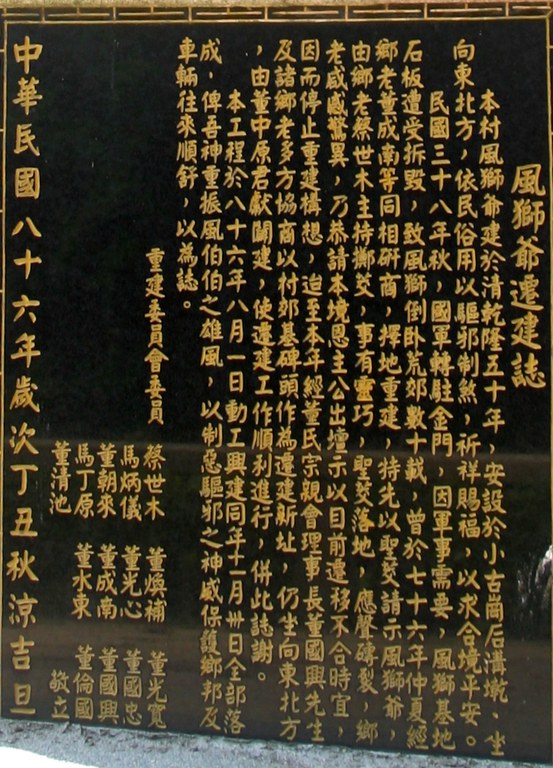 風獅爺遷建誌
本村風獅爺建於清乾隆五十年，安設於小古崗后溝墘、坐
向東北方，依民俗用以驅邪制煞，祈祥賜福，以求合境平安。
民國三十八年秋，國軍轉駐金門，因軍事需要，風獅基地
石板遭受拆毀，致風獅倒卧荒郊數十載，曾於七十六年仲夏經
鄉老董成南等同相研商，擇地重建，特先以聖茭請示風獅爺，
由鄉老蔡世木主持擲茭，事有靈巧，聖茭落地，應聲磚裂，鄉
老咸感驚異，乃恭請本境恩主公出壇示以目前遷移不合時宜，
因而停止重建構想，迨至本年經董氏宗親會理事長董國興先生
及諸鄉老多方協商以村郊基碑頭作為遷建新址　仍坐向東北方
，由董中原君獻闢建，使遷建工作順利進行，併此誌謝。
本工程於八十六年八月一日動工興建同年十一月卅日全部落
成，俾吾神重振風伯伯之雄風，以制惡驅邪之神威保護鄉邦及
車輛往來順舒，以為誌。
重建委員會委員　蔡世木　董煥補　董光寬
馬炳儀　董光心　董國忠
董朝來　董成南　董國興
馬丁原　董水東　董倫國
董清池　敬立
中華民國八十六年歲次丁丑秋涼吉旦